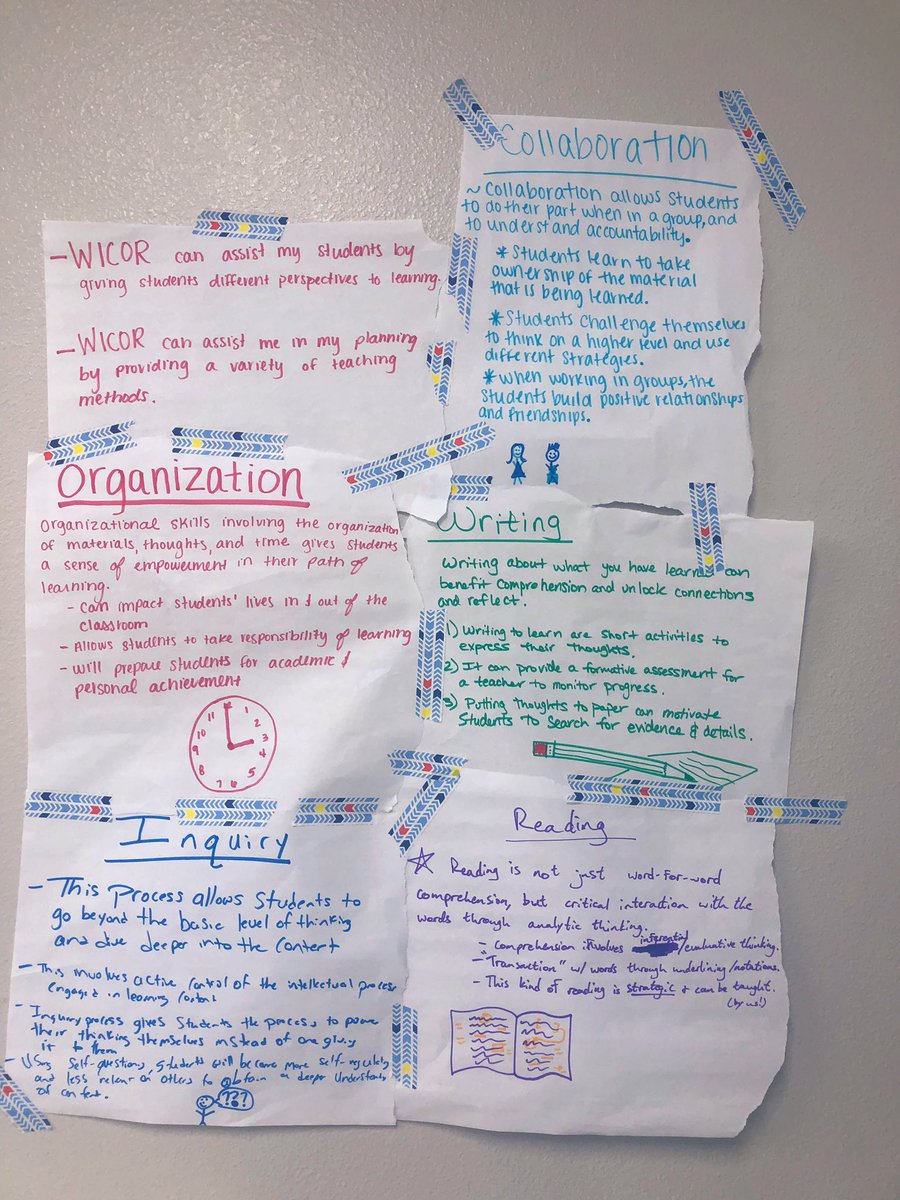 - WICOR can assist my students by
giving students different perspectives to learning.
- WICOR can assist me in my planning
by providing a variety of teaching
methods.
Collaboration
~ Collaboration allows students
to do their part when in a group, and
to understand accountability.
* Students learn to take
ownership of the material
that is being learned.
* Students challenge themselves
to think on a higher level and use
different strategies.
* when working in groups, the
students build positive relationships
and friendships.
Organization
Organizational skills involving the organization
of materials, thoughts, and time gives students
a sense of empowerment in their path of
learning.
- can impact students' lives in & out of the
classroom
- Allows students to take responsibility of learning
- will prepare students for academic &
personal achievement
11 12 1 2 3 4 5 6 7 8 9 10
Writing
Writing about what you have learned can
benefit comprehension and unlock connections
and reflect.
1) Writing to learn are short activities to
express their thoughts.
2) It can provide a formative assessment for
a teacher to monitor progress.
3) Putting thoughts to paper can motivate
students to search for evidence & details.
Inquiry
- This process allows students to
go beyond the basic level of thinking
and dive deeper into the content
- This involves active control of the intellectual process
engaged in learning content
- Inquiry process gives students the process to
their thinking themselves instead of one giving
it to them
- Using self-questions, students will become more self-
and less reliant on others to obtain a deeper
of content.
???
Reading
Reading is not just word-for-word
comprehension, but critical interaction with the
words through analytic thinking.
- Comprehension involves inferential/evaluative thinking.
- "Transaction" w/ words through underlining/notations.
- This kind of reading is strategic & can be taught.
(by us!)